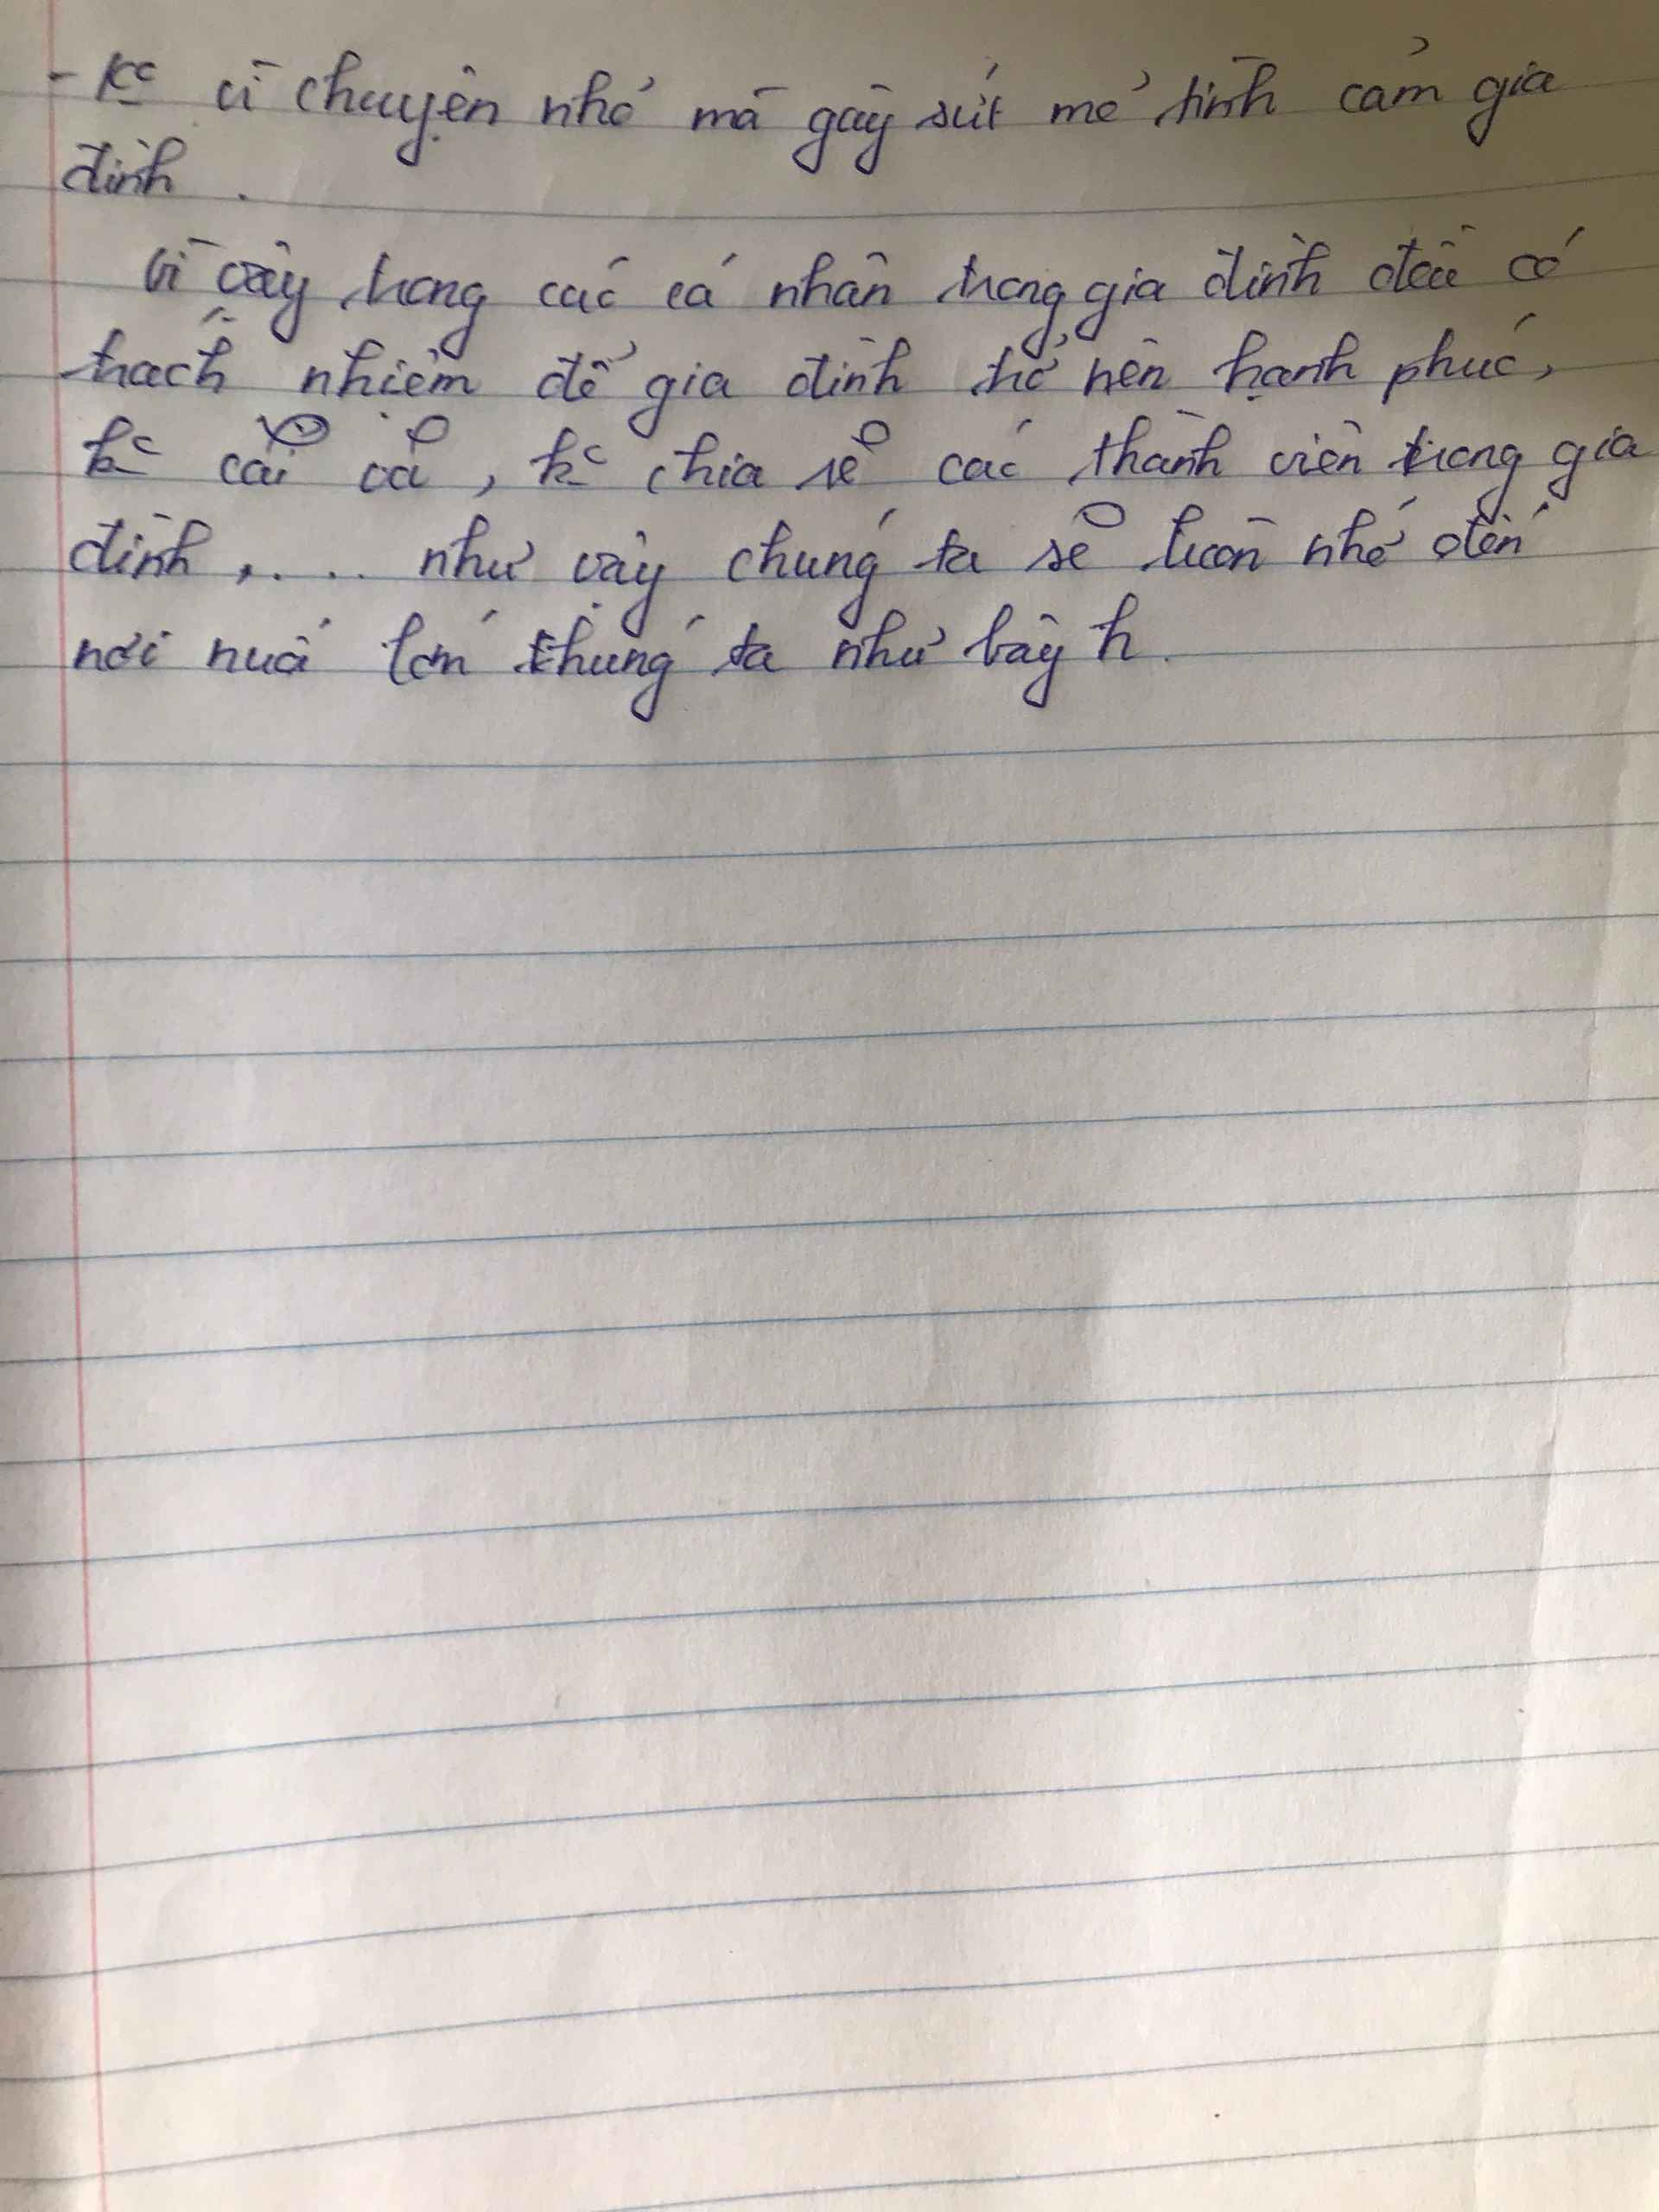 - Kº vì chuyện nhỏ mà gây sứt mẻ tình cảm gia
đình .
Vì vậy trong các cá nhân trong gia đình đều có
trách nhiệm để gia đình trở nên hạnh phúc,
kº cãi vã , kº chia sẻ các thành viên trong gia
đình , . . . như vậy chúng ta sẽ luôn nhớ đến
nơi nuôi lớn chúng ta như bây h.